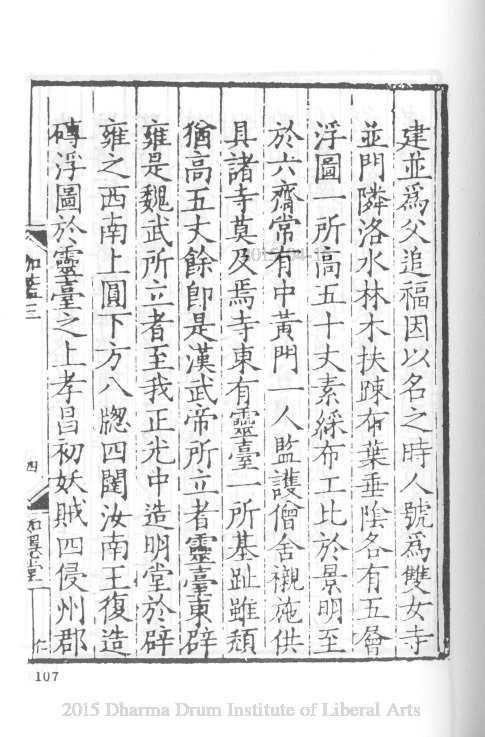 建並爲父追福因以名之時人號爲雙女寺
並門隣洛水林木扶踈布葉垂陰各有五層
浮圖一所高五十丈素綵布工比於景明至
於六齋常有中黃門一人監護僧舍襯施供
具諸寺莫及焉寺東有靈臺一所基趾雖頹
猶高五丈餘即是漢武帝所立者靈臺東辟
雍是魏武所立者至我正光中造明堂於辟
雍之西南上圓下方八牕四闥汝南王復造
磚浮圖於靈臺之上孝昌初妖賊四侵州郡
伽藍三
四
如隱堂
仁
107
2015 Dharma Drum Institute of Liberal Arts